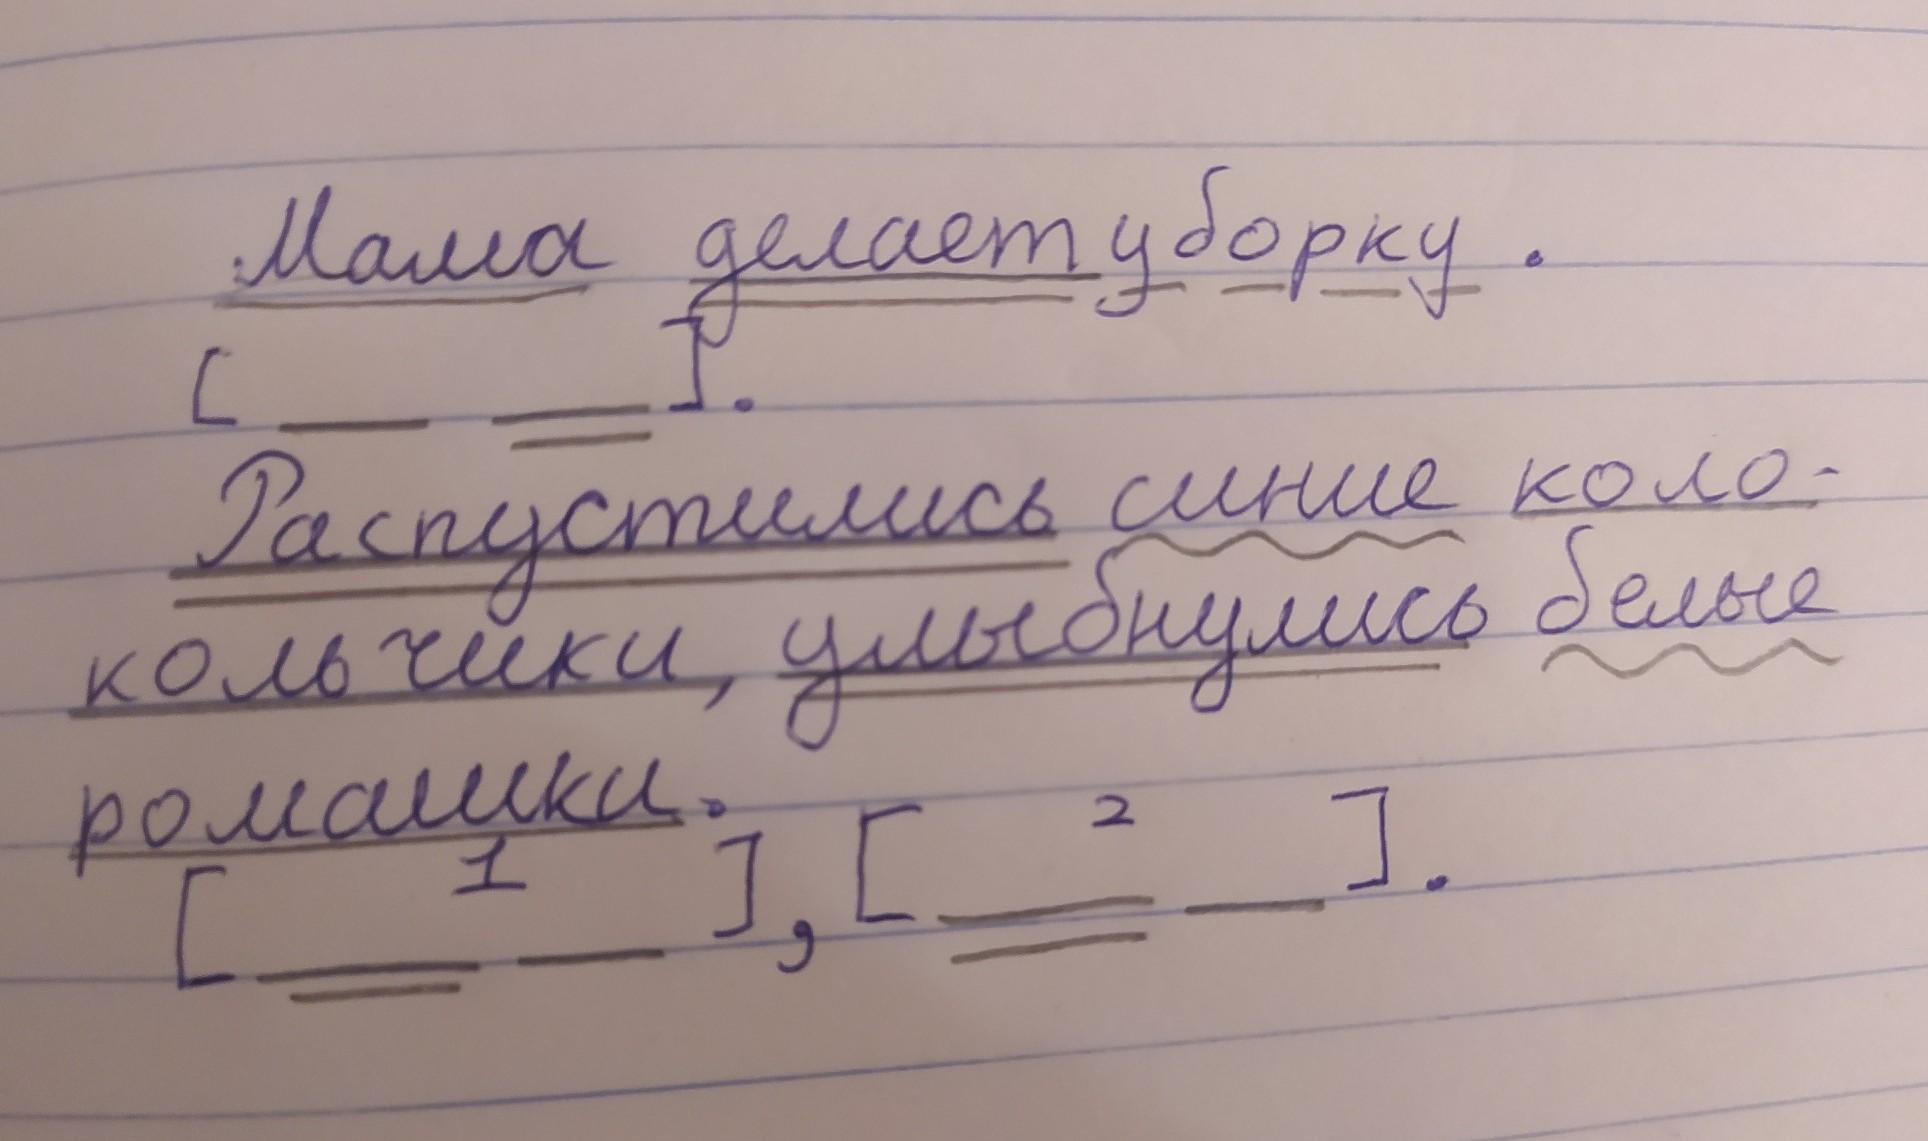 Мама делает уборку.
[ ].
Распустились синие коло-
кольчики, улыбнулись белые
ромашки.
[ 1 ], [ 2 ].